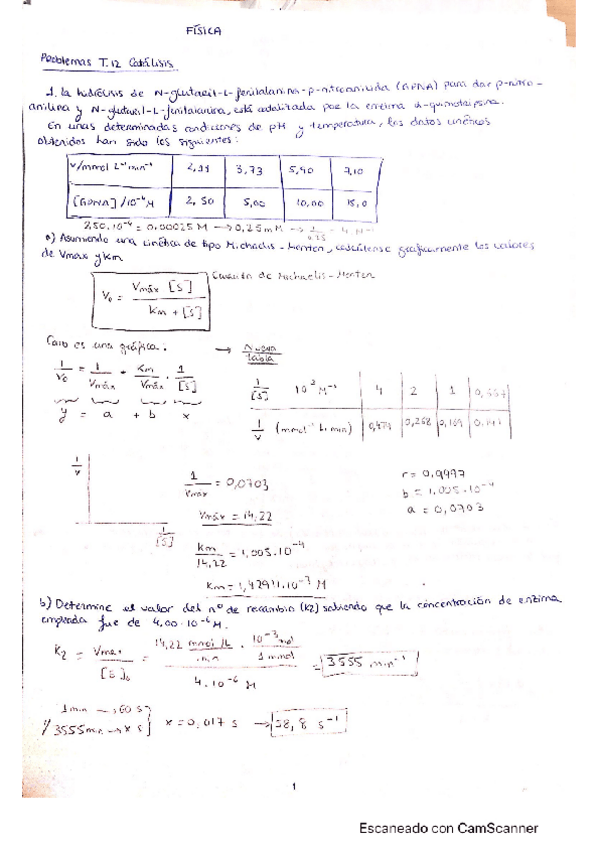 FÍSICA
Problemas T.12 Catálisis
1. La hidrólisis de N-glutaril-L-fenilalanina-p-nitroanilida (GPNA) para dar p-nitro-
anilina y N-glutaril-L-fenilalanina, está catalizada por la enzima α-quimotripsina.
En unas determinadas condiciones de pH y temperatura, los datos cinéticos
obtenidos han sido los siguientes:
V/mmol L⁻¹ min⁻¹ 3,73 5,90 7,10
[GPNA]/10⁻⁴M 2,50 5,00 10,00 15,0
2,50·10⁻⁴ = 0,00025 M → 0,25 mM →
a) Asumiendo una cinética de tipo Michaelis-Menten, calcúlense gráficamente los valores
de Vmax y Km
V₀ = Vmáx [S] / Km + [S] Ecuación de Michaelis-Menten
Caso es una gráfica: → Nueva tabla
1/V₀ = 1/Vmáx + Km/Vmáx · 1/[S]
y = a + b x
1/[S] 10³ M⁻¹ 4 2 1 0,667
1/V (mmol⁻¹ L min) 0,268 0,169 0,141
1/V
1/[S]
1/Vmáx = 0,0703
Vmáx = 14,22
Km/14,22 = 1,005·10⁻⁴
r = 0,9997
b = 1,005·10⁻⁴
a = 0,0703
b) Determine el valor del nº de recambio (k2) sabiendo que la concentración de enzima
empleada fue de 4,00·10⁻⁶ M.
K₂ = Vmax / [S]₀ = 14,22 mmol/L / min · 10⁻³ mol / 1 mmol / 4·10⁻⁶ M = 3555 min⁻¹
1 min → 60 s
1/3555 min → x s
x = 0,017 s → 58,8 s⁻¹
1
Escaneado con CamScanner